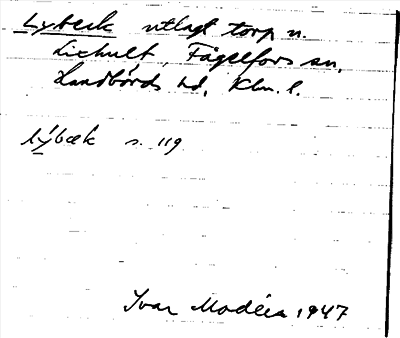 Lybeck utlagt torp u.
Lixhult, Fågelfors sn,
Handbörds hd, Klm. l.
lýbæk s. 119
Ivar Modéer 1947